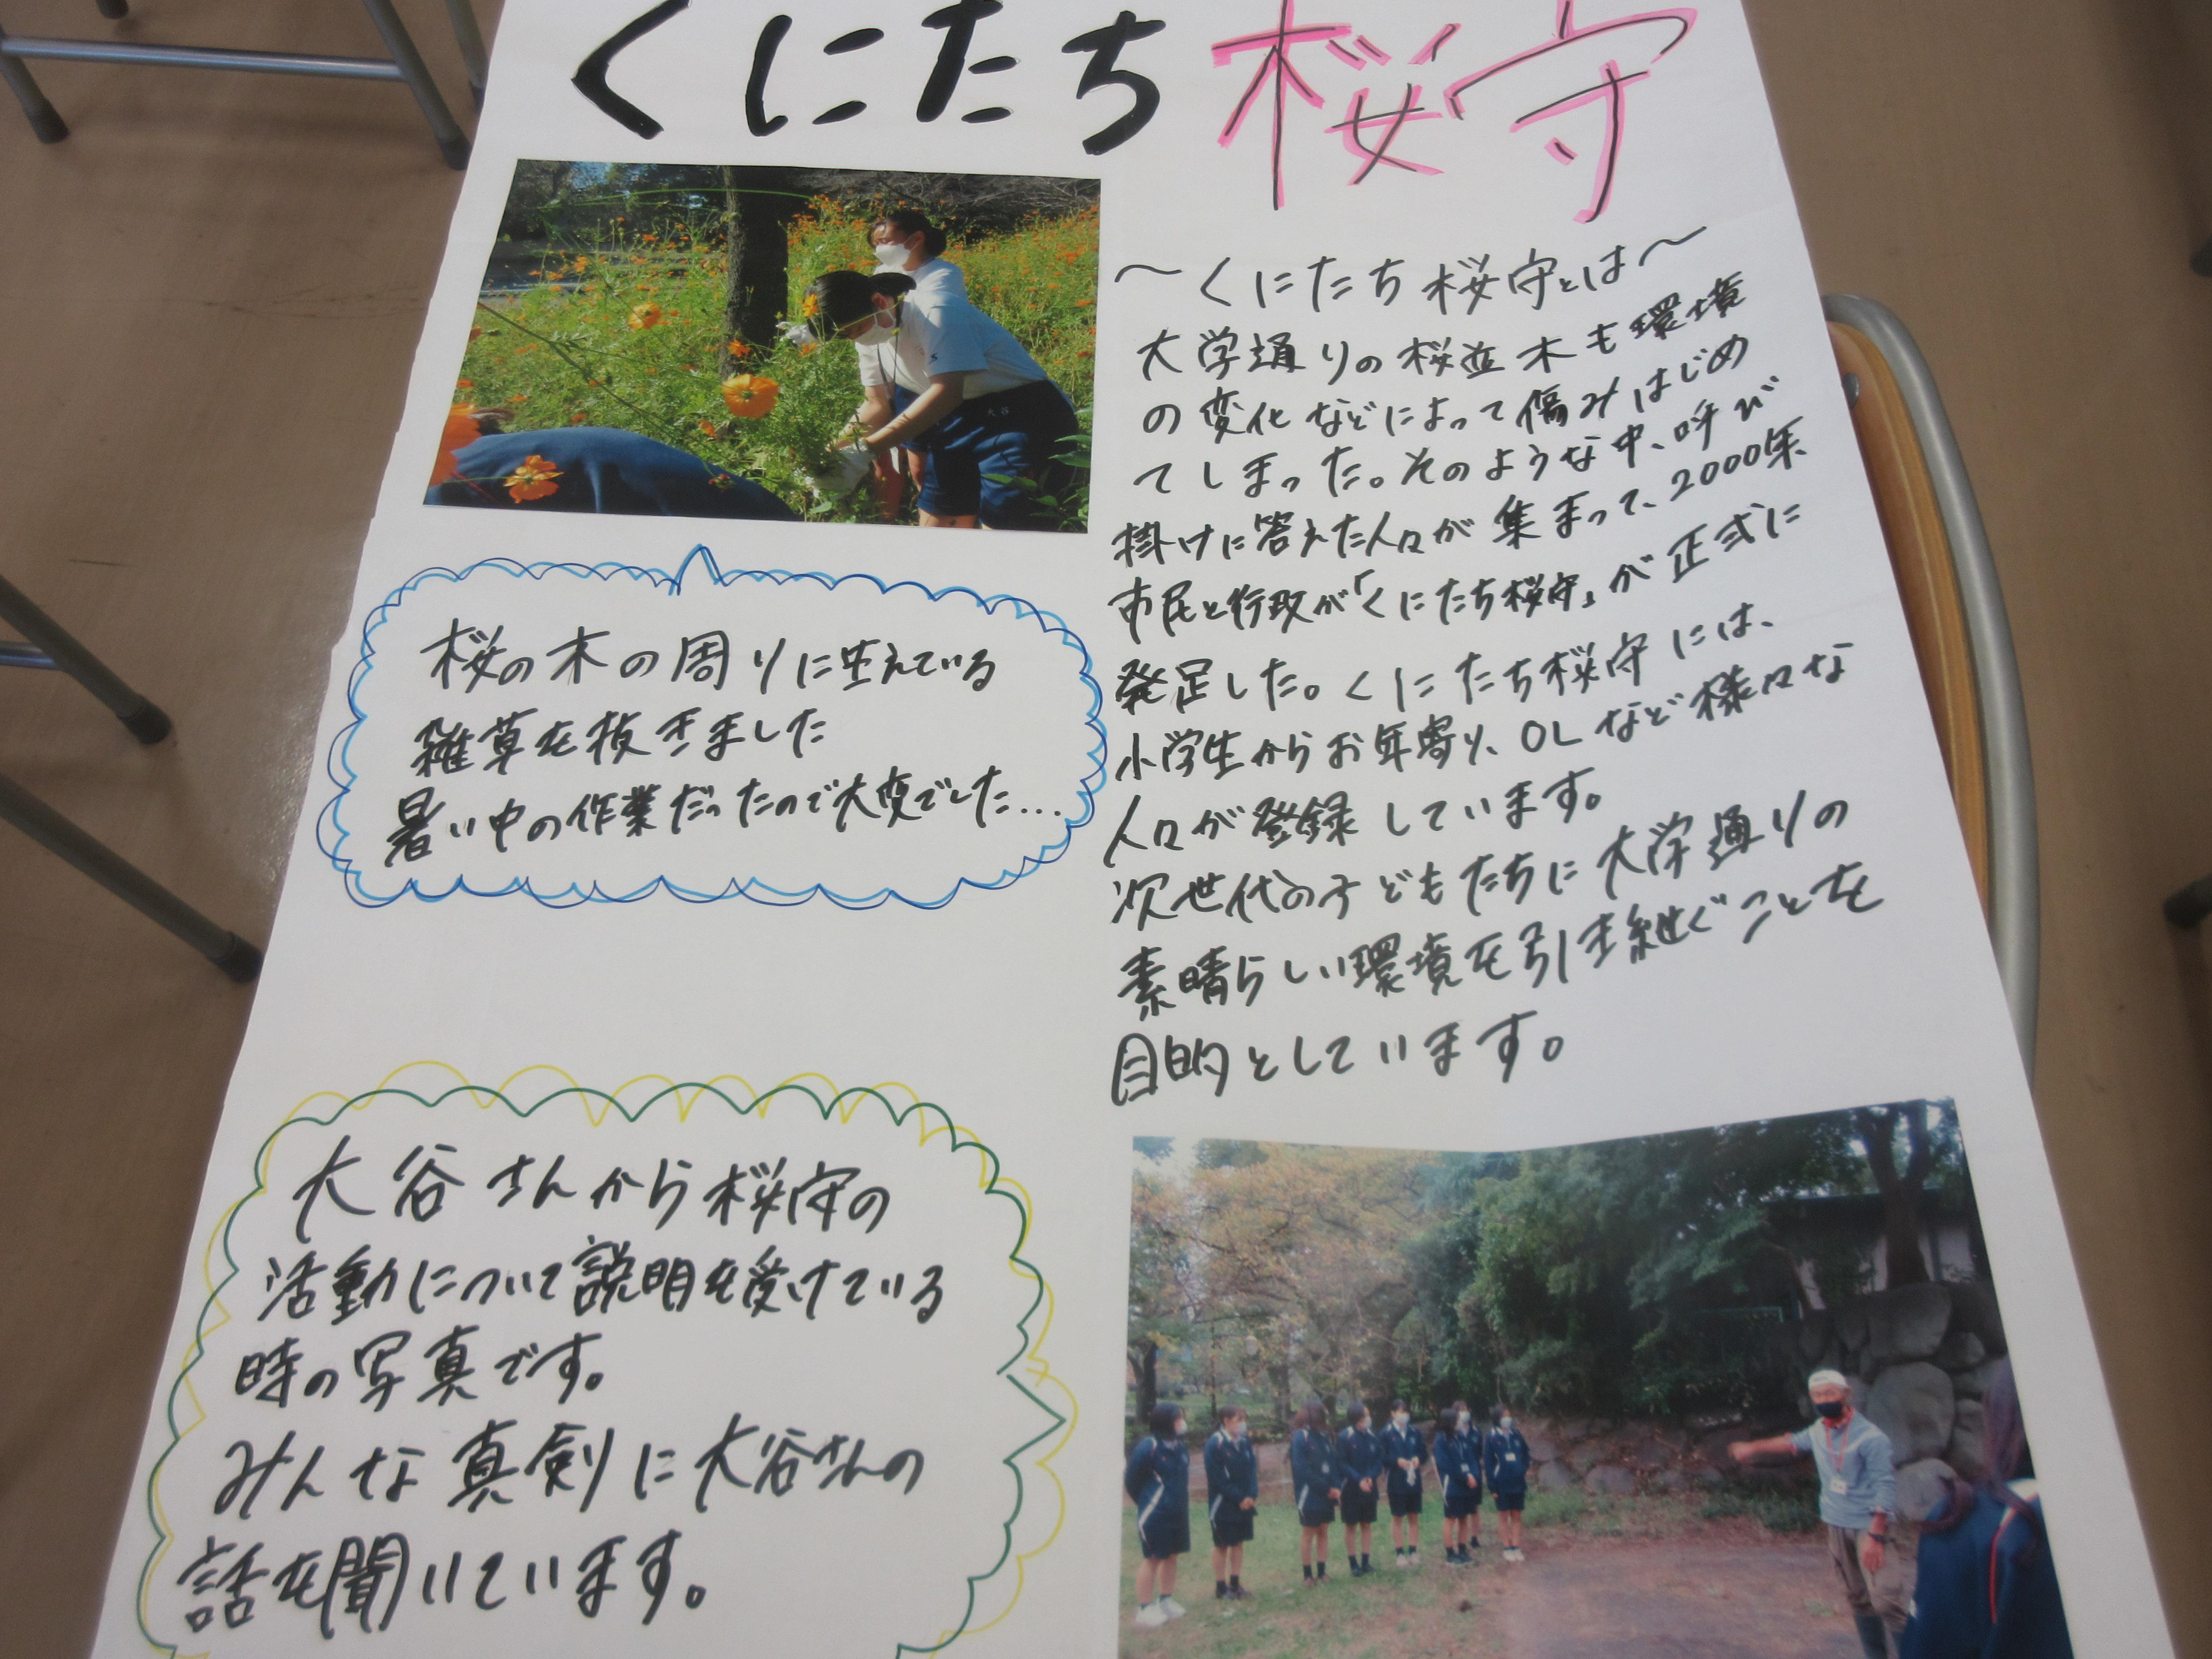 くにたち桜守
～くにたち桜守とは～
大学通りの桜並木も環境
の変化などによって傷みはじめ
てしまった。そのような中、呼び
掛けに答えた人々が集まって、2000年
市民と行政が「くにたち桜守」が正式に
発足した。くにたち桜守には、
小学生からお年寄り、OLなど様々な
人々が登録しています。
次世代の子どもたちに大学通りの
素晴らしい環境を引き継ぐことを
目的としています。
大谷
桜の木の周りに生えている
雑草を抜きました
暑い中の作業だったので大変でした…
大谷さんから桜守の
活動について説明を受けている
時の写真です。
みんな真剣に大谷さんの
話を聞いています。